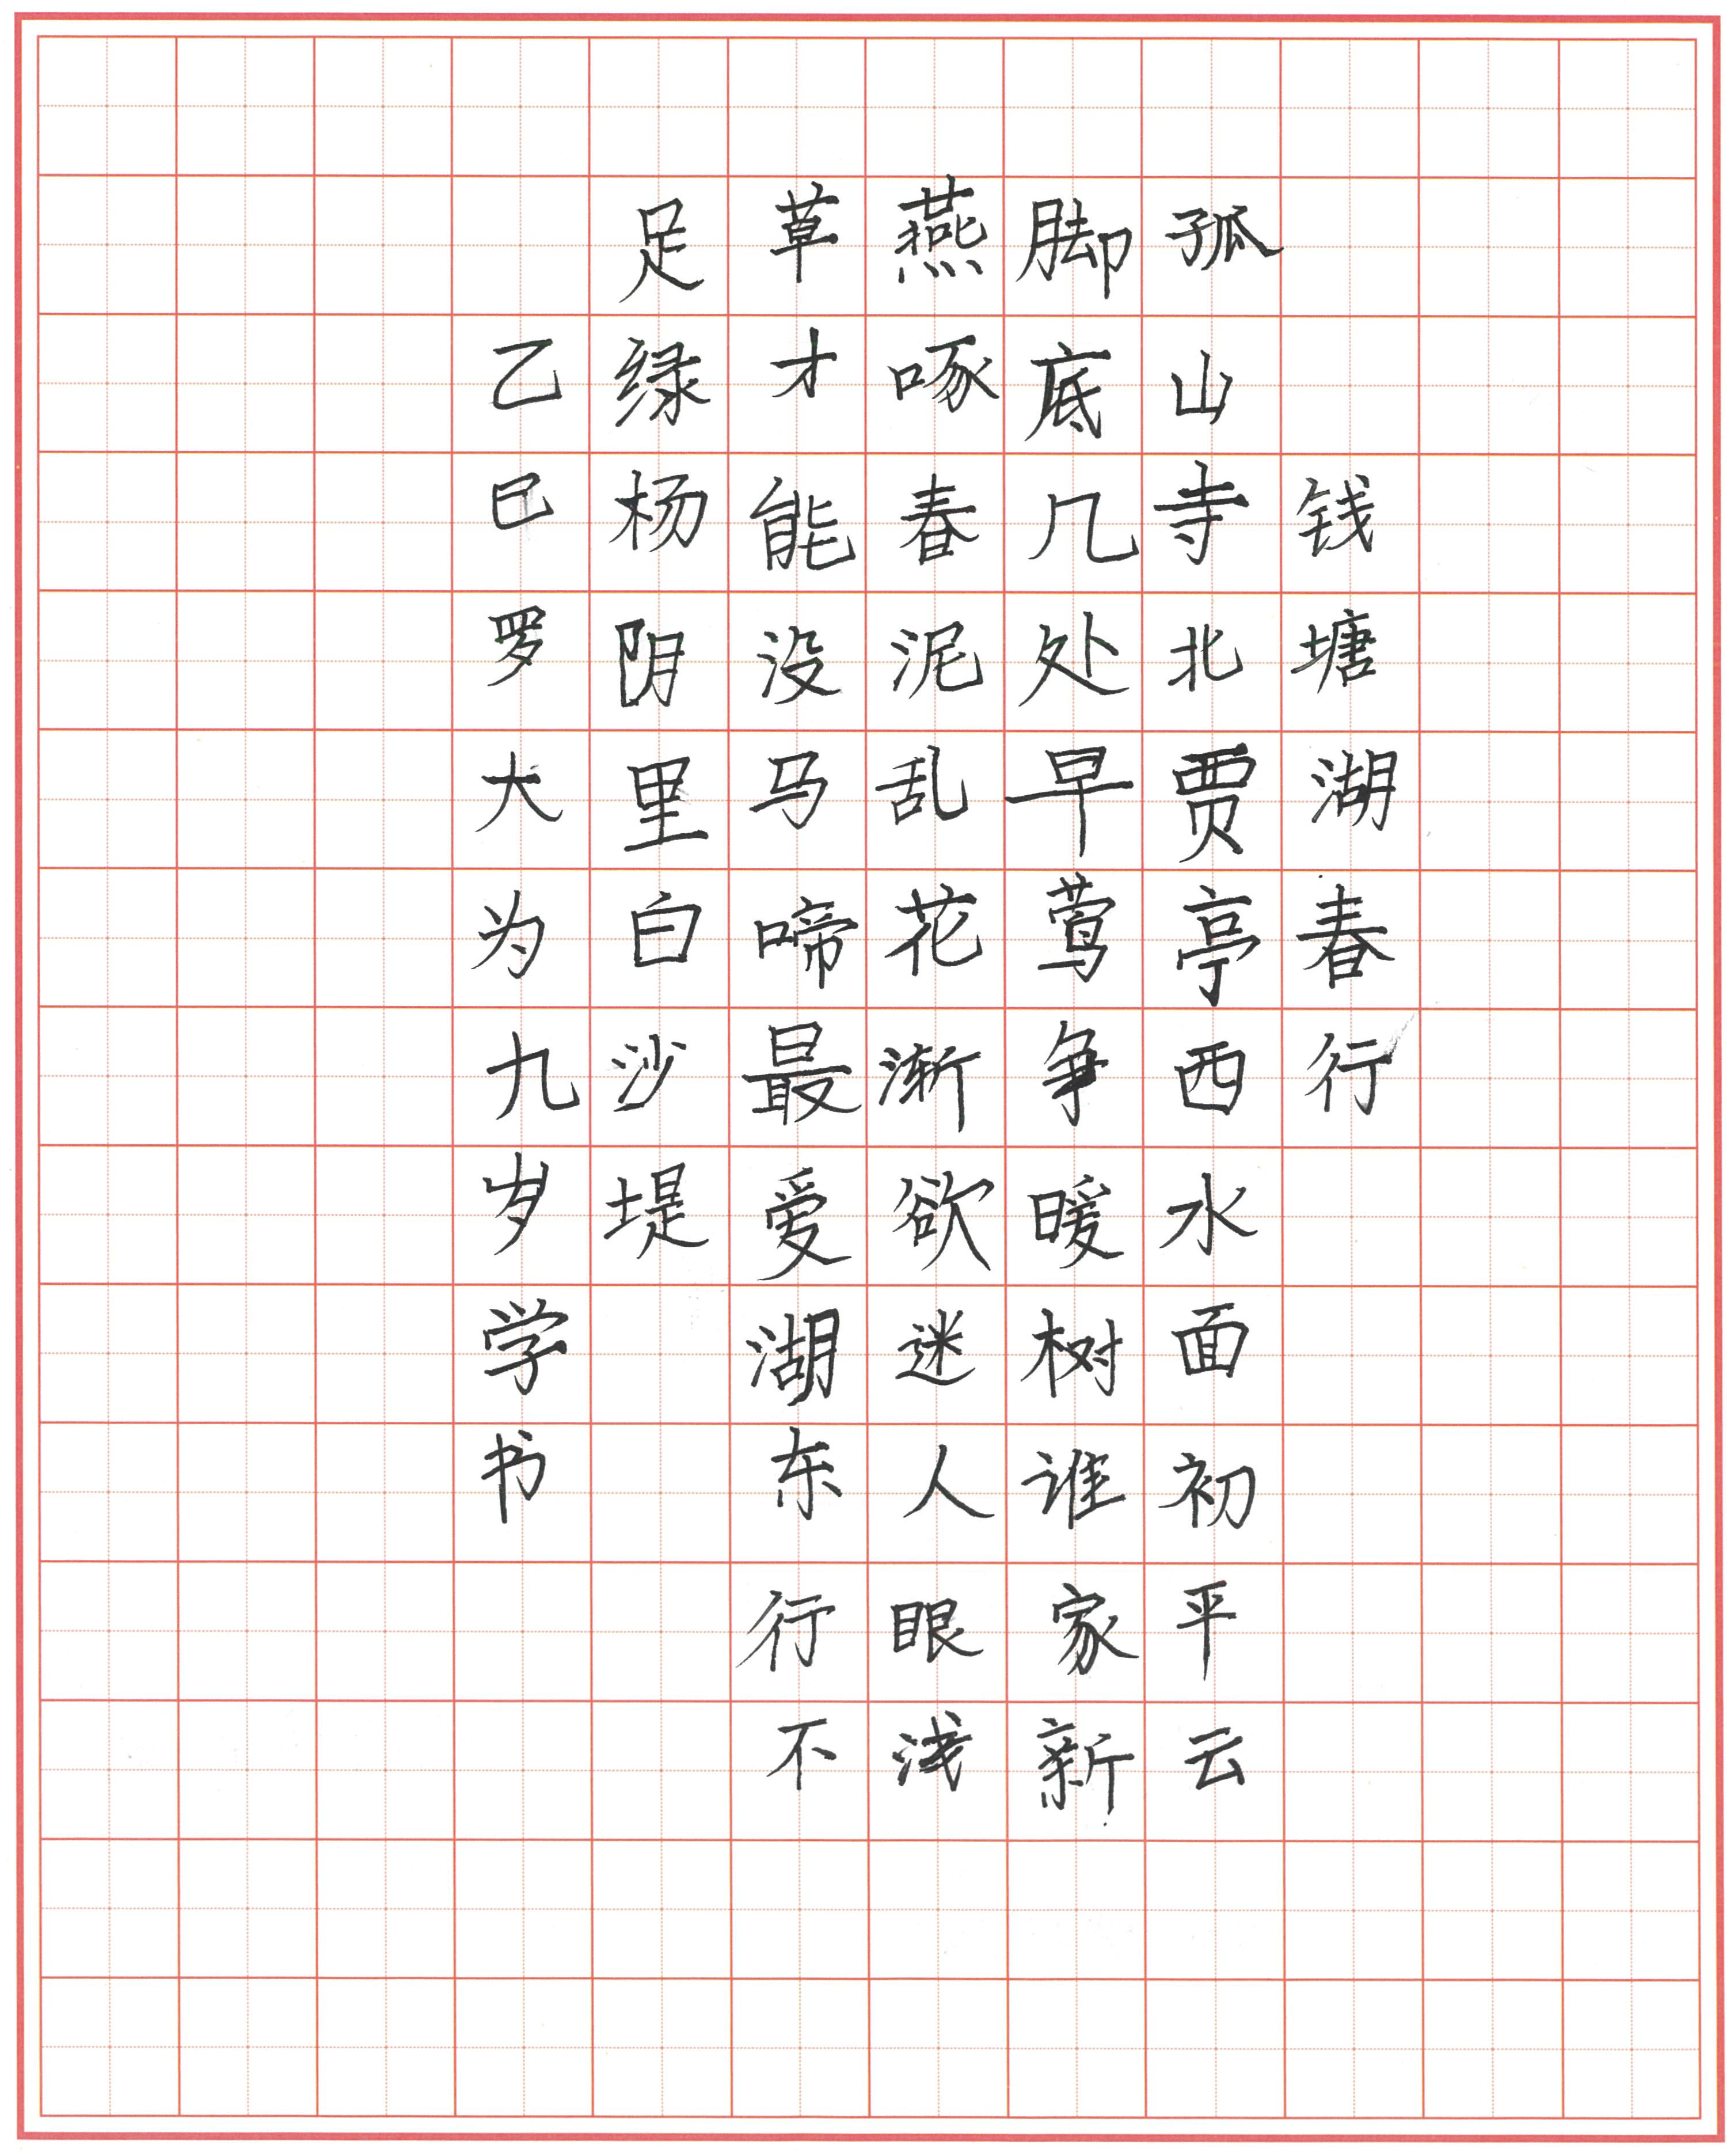 钱塘湖春行
孤山寺北贾亭西水面初平云
脚底几处早莺争暖树谁家新
燕啄春泥乱花渐欲迷人眼浅
草才能没马啼最爱湖东行不
足绿杨阴里白沙堤
乙巳罗大为九岁学书